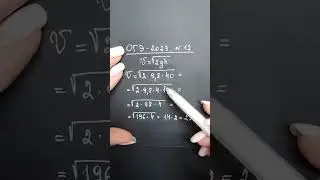 ОГЭ-2023 №12
V=√2gh
V=√2·9,8·40 =
=√2·9,8·4·10 =
=√2·98·4 =
=√196·4 = 14·2=